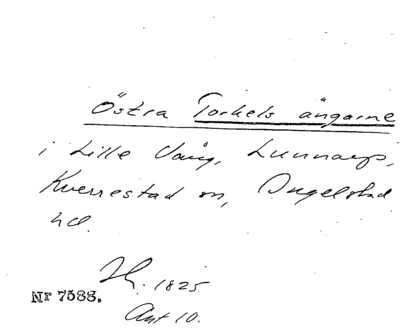 Östra Torkels ängarne
i Lille Vång, Lunnarp,
Kverrestad sn, Ingelstad
hd.
1825.
Nr 7588.
Akt 10.